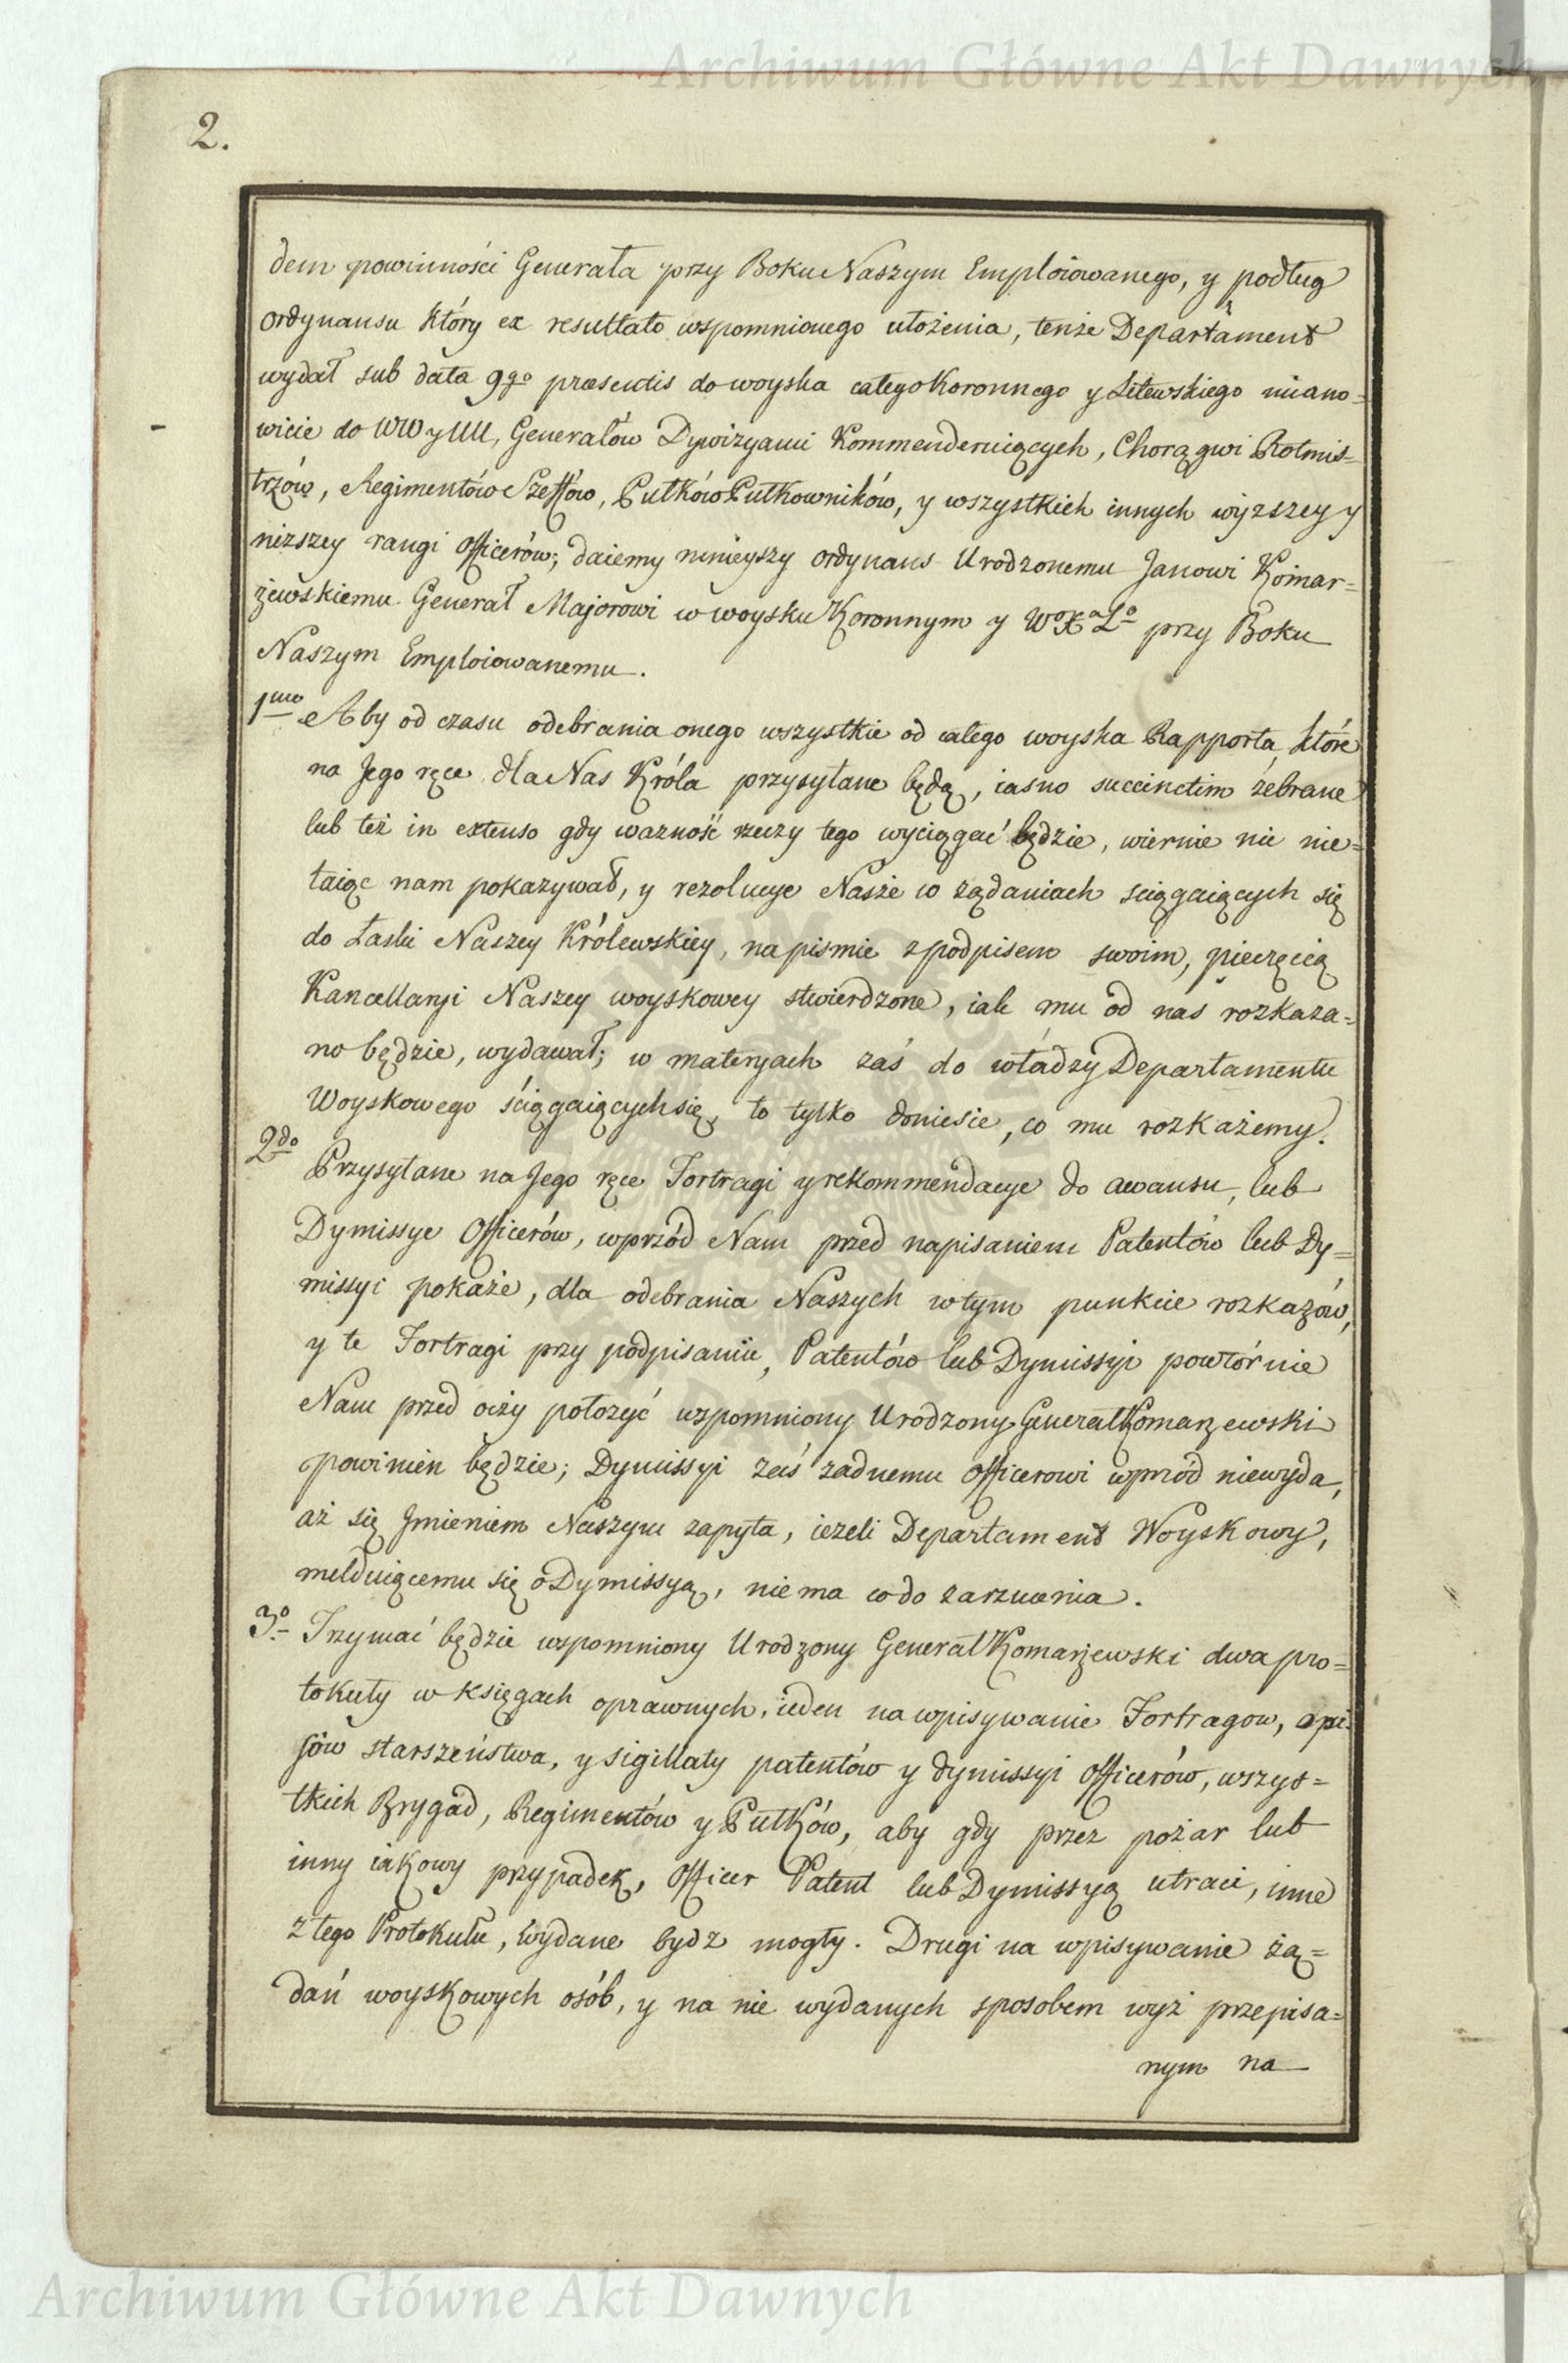 Archiwum Główne Akt Dawnych
2.
dem powinności Generała przy Boku Naszym Emploiowanego, y podług
ordynansu który ex resultato wspomnionego ułożenia, tenże Departament
wydał sub data 9go præsentis do woyska całego Koronnego y Litewskiego miano=
wicie do WW y UU, Generałów Dywizyami Kommenderuiących, Chorągwi Rotmis=
trzów, Regimentów Szeffów, Pułków Pułkowników, y wszystkich innych wyższey y
niższey rangi officerów; daiemy ninieyszy ordynans Urodzonemu Janowi Komar=
żewskiemu Generał Majorowi w woysku Koronnym y WoXaLo przy Boku
Naszym Emploiowanemu.
1mo Aby od czasu odebrania onego wszystkie od całego woyska Rapporta, które
na Jego ręce dla Nas Króla przysyłane będą, iasno succinctim zebrane
lub też in extenso gdy ważność rzeczy tego wyciągać będzie, wiernie nic nie=
taiąc nam pokazywał, y rezolucye Nasze w żądaniach sciągaiących się
do Łaski Naszey Królewskiey, na pismie z podpisem swoim, pieczęcią
Kancellaryi Naszey woyskowey stwierdzone, iak mu od nas rozkaza=
no będzie, wydawał; w materyach zaś do władzy Departamentu
Woyskowego ściągaiących się, to tylko doniesie, co mu rozkażemy.
2do Przysyłane na Jego ręce Fortragi y rekommendacye do awansu, lub
Dymissye Officerów, wprzód Nam przed napisaniem Patentów lub Dy=
missyi pokaże, dla odebrania Naszych w tym punkcie rozkazów,
y te Fortragi przy podpisaniu, Patentów lub Dymissyi powtórnie
Nam przed oczy położyć wspomniony Urodzony Generał Komarzewski
powinien będzie; Dymissyi zaś żadnemu officerowi wprzód niewyda,
aż się Jmieniem Naszym zapyta, ieżeli Departament Woyskowy,
melduiącemu się o Dymissyą, nie ma co do zarzucenia.
3o Trzymać będzie wspomniony Urodzony Generał Komarżewski dwa pro=
tokuły w księgach oprawnych, ieden na wpisywanie Fortragow, opi=
sów starszeństwa, y sigillaty patentów y dymissyi officerów, wszys=
tkich Brygad, Regimentów y Pułków, aby gdy przez pożar lub
inny iakowy przypadek, Officer Patent lub Dymissyą utraci, inne
z tego Protokułu, wydane bydz mogły. Drugi na wpisywanie żą=
dań woyskowych osób, y na nie wydanych sposobem wyż przepisa=
nym na
Archiwum Główne Akt Dawnych